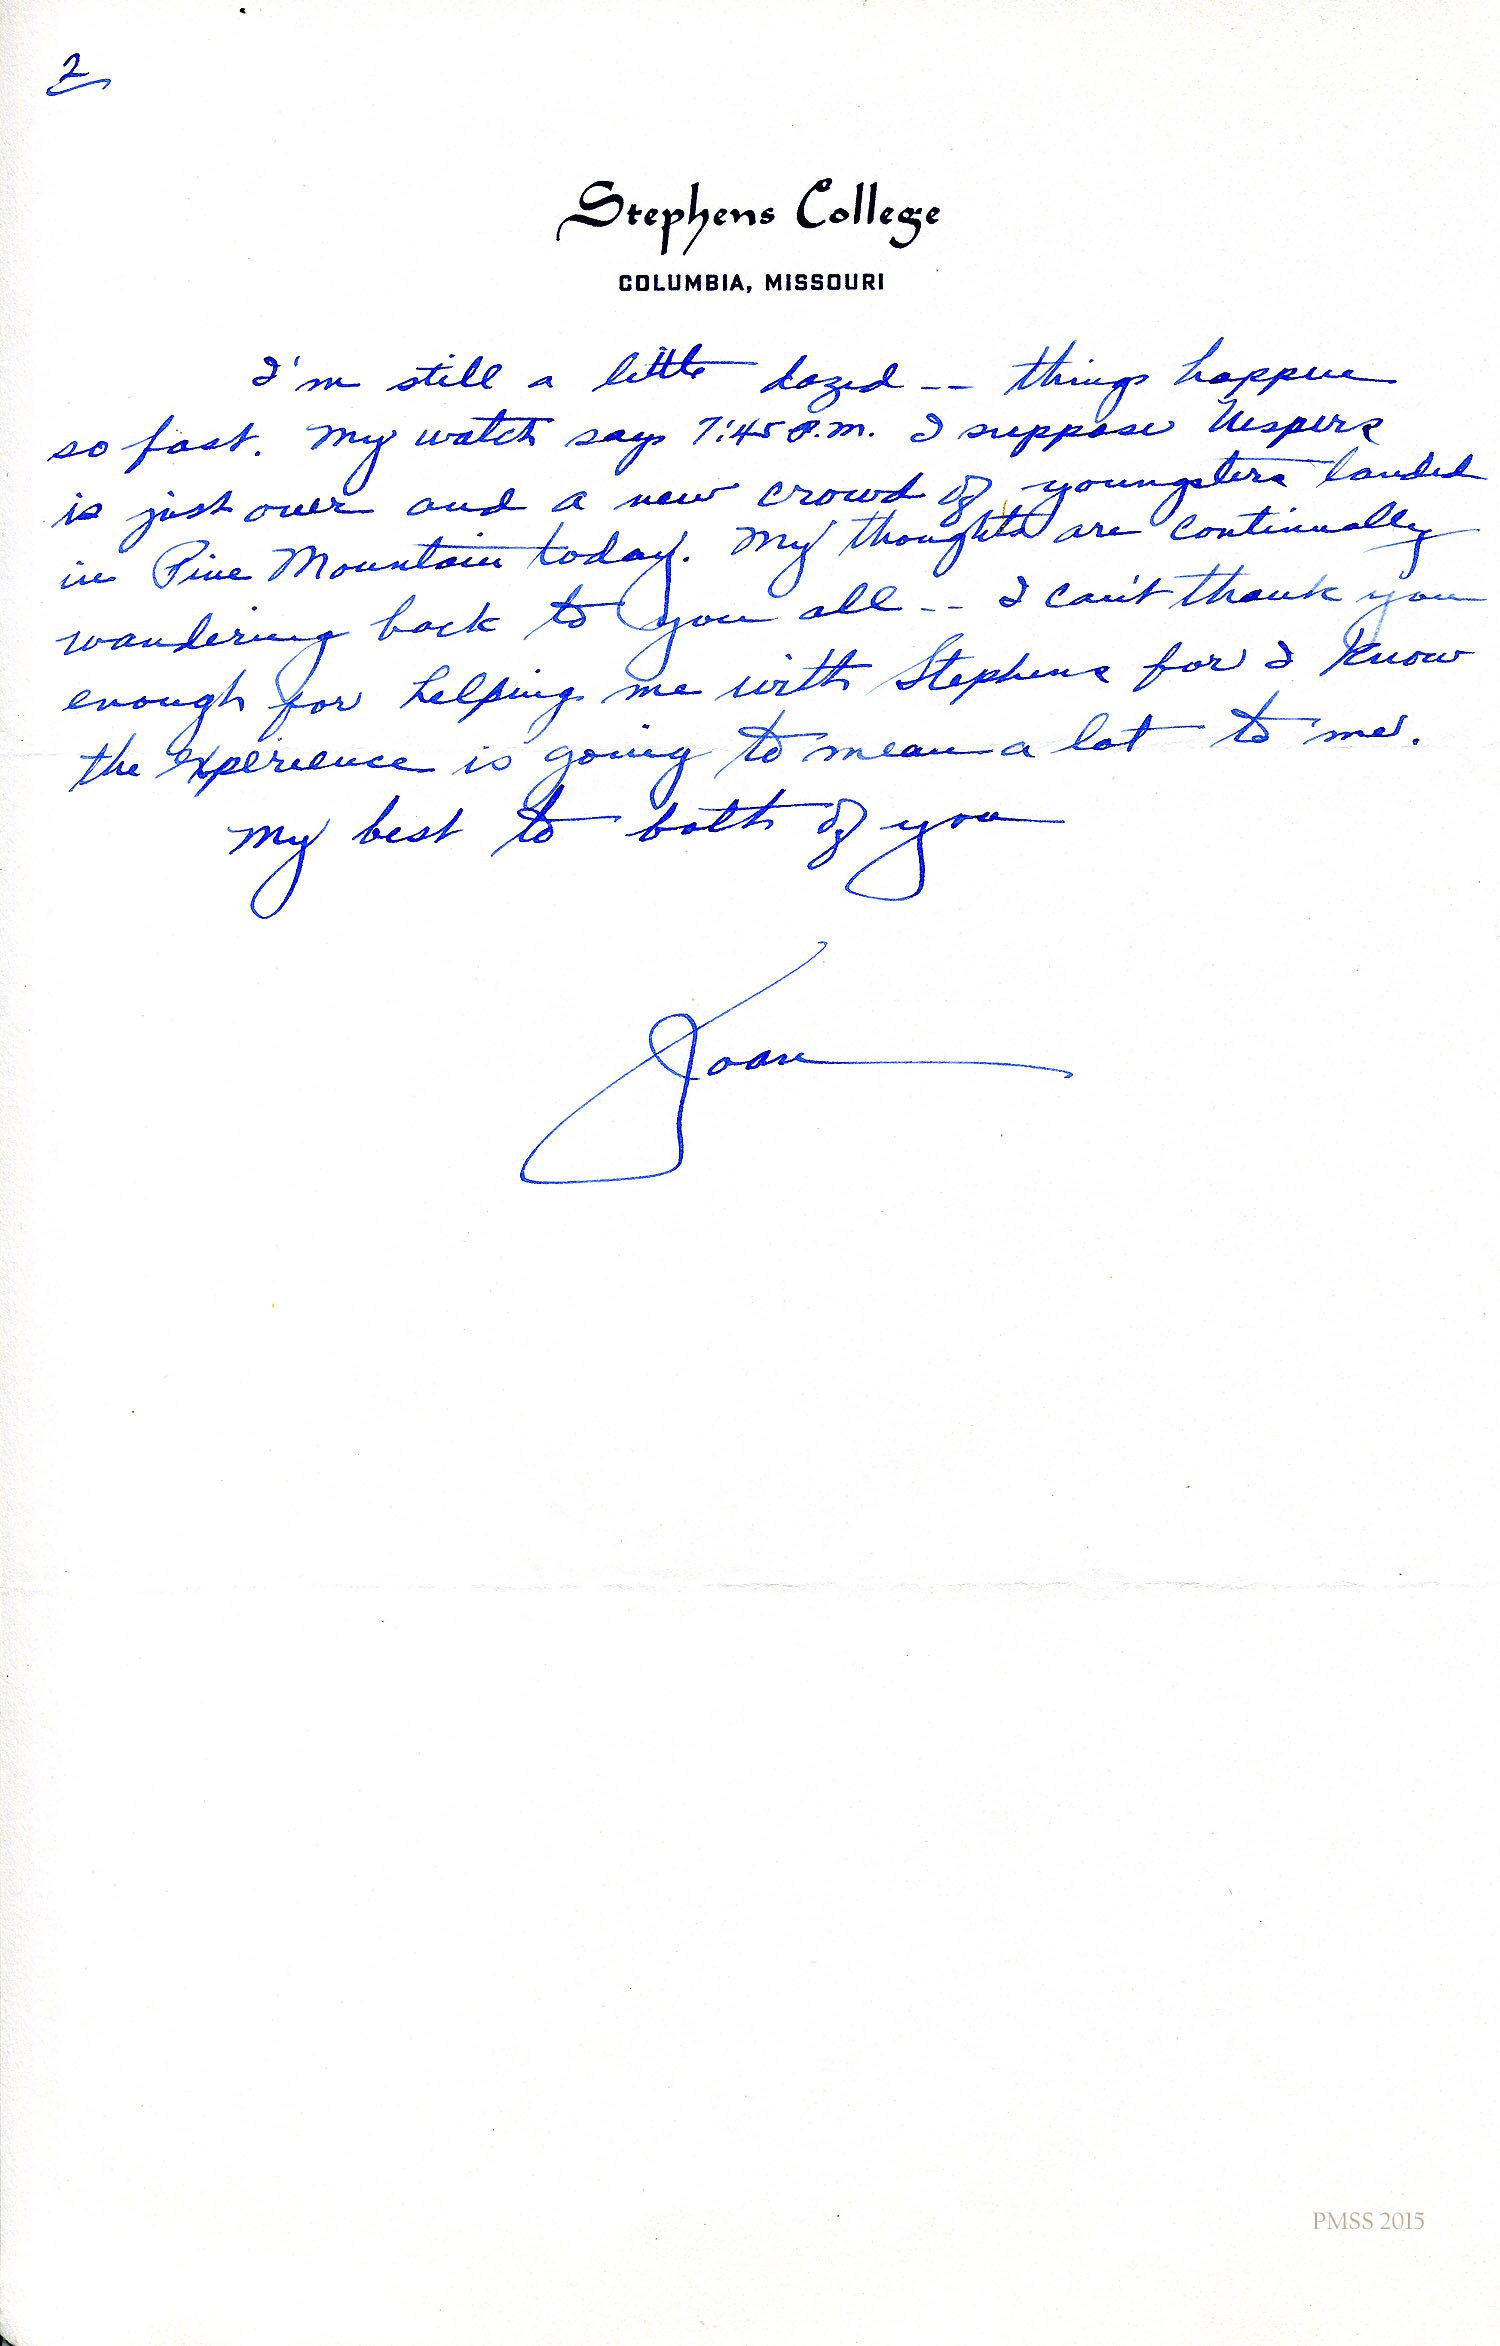 2
Stephens College
COLUMBIA, MISSOURI
I'm still a little dazed -- things happen
so fast. My watch says 7:45 P.M. I suppose Vespers
is just over and a new crowd of youngsters landed
in Pine Mountain today. My thoughts are continually
wandering back to you all -- I can't thank you
enough for helping me with Stephens for I know
the experience is going to mean a lot to me.
My best to both of you
Joan
PMSS 2015